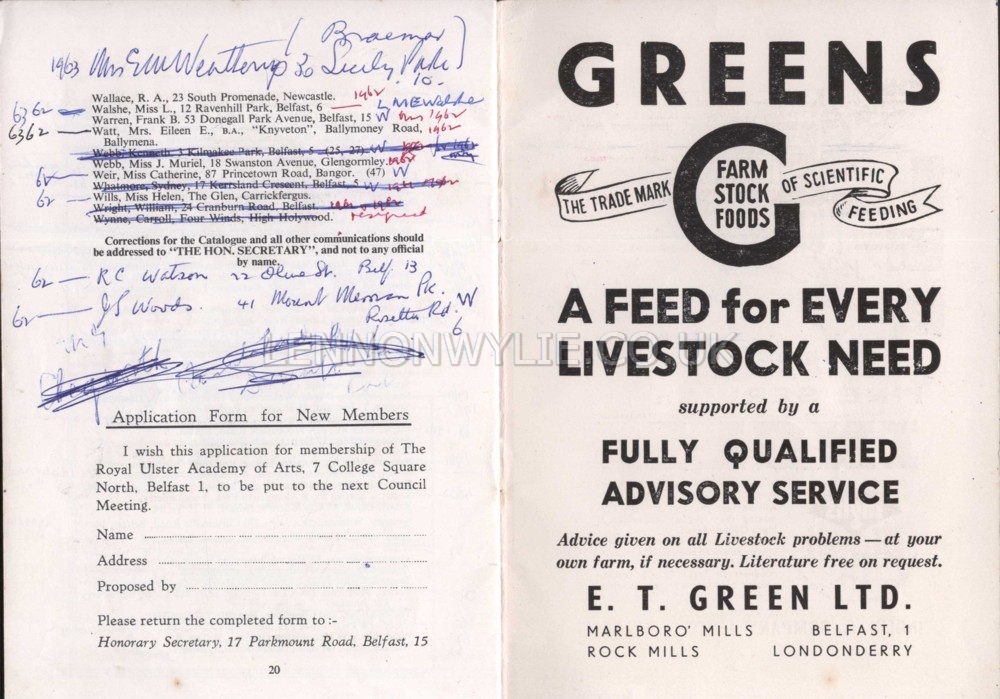 1963 Mrs E M Weatherup ( Braemar )
30 Sicily Park
10.
Wallace, R. A., 23 South Promenade, Newcastle. 1962
6362 — Walshe, Miss L., 12 Ravenhill Park, Belfast, 6 — M E Walshe
Warren, Frank B. 53 Donegall Park Avenue, Belfast, 15 W 1962
6362 — Watt, Mrs. Eileen E., B.A., "Knyveton", Ballymoney Road, 1962
Ballymena.
Webb, Kenneth, 3 Kilmakee Park, Belfast, 5 — (25, 27) W
Webb, Miss J. Muriel, 18 Swanston Avenue, Glengormley. 1962
62 — Weir, Miss Catherine, 87 Princetown Road, Bangor. (47) W
Whatmore, Sydney, 17 Kerrsland Crescent, Belfast, 5 W
62 — Wills, Miss Helen, The Glen, Carrickfergus.
Wright, William, 24 Cranburn Road, Belfast. 1961 & 1962
Wynne, Carroll, Four Winds, High Holywood. resigned
Corrections for the Catalogue and all other communications should
be addressed to "THE HON. SECRETARY", and not to any official
by name.
62 — R C Watson 22 Olive St. Belf. 13
62 — J S Woods 41 Mount Merrion Pk.
Rosetta Rd. W
6
LENNONWYLIE.CO.UK
Application Form for New Members
I wish this application for membership of The
Royal Ulster Academy of Arts, 7 College Square
North, Belfast 1, to be put to the next Council
Meeting.
Name
Address
Proposed by
Please return the completed form to :-
Honorary Secretary, 17 Parkmount Road, Belfast, 15
20
GREENS
G
THE TRADE MARK
FARM
STOCK
FOODS
OF SCIENTIFIC
FEEDING
A FEED for EVERY
LIVESTOCK NEED
supported by a
FULLY QUALIFIED
ADVISORY SERVICE
Advice given on all Livestock problems — at your
own farm, if necessary. Literature free on request.
E. T. GREEN LTD.
MARLBORO' MILLS BELFAST, 1
ROCK MILLS LONDONDERRY